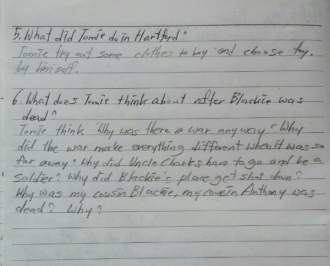 5. What did Tomie do in Hartford?
Tomie try out some clothes to buy and choose toy.
by himself.
6. What does Tomie think about after Blackie was
dead?
Tomie think Why was there a war anyway? Why
did the war make everything different when it was so
far away? Why did Uncle Charles have to go and be a
soldier? Why did Blackie's plane get shot down?
Why was my cousin Blackie, my cousin Anthony was
dead? Why?